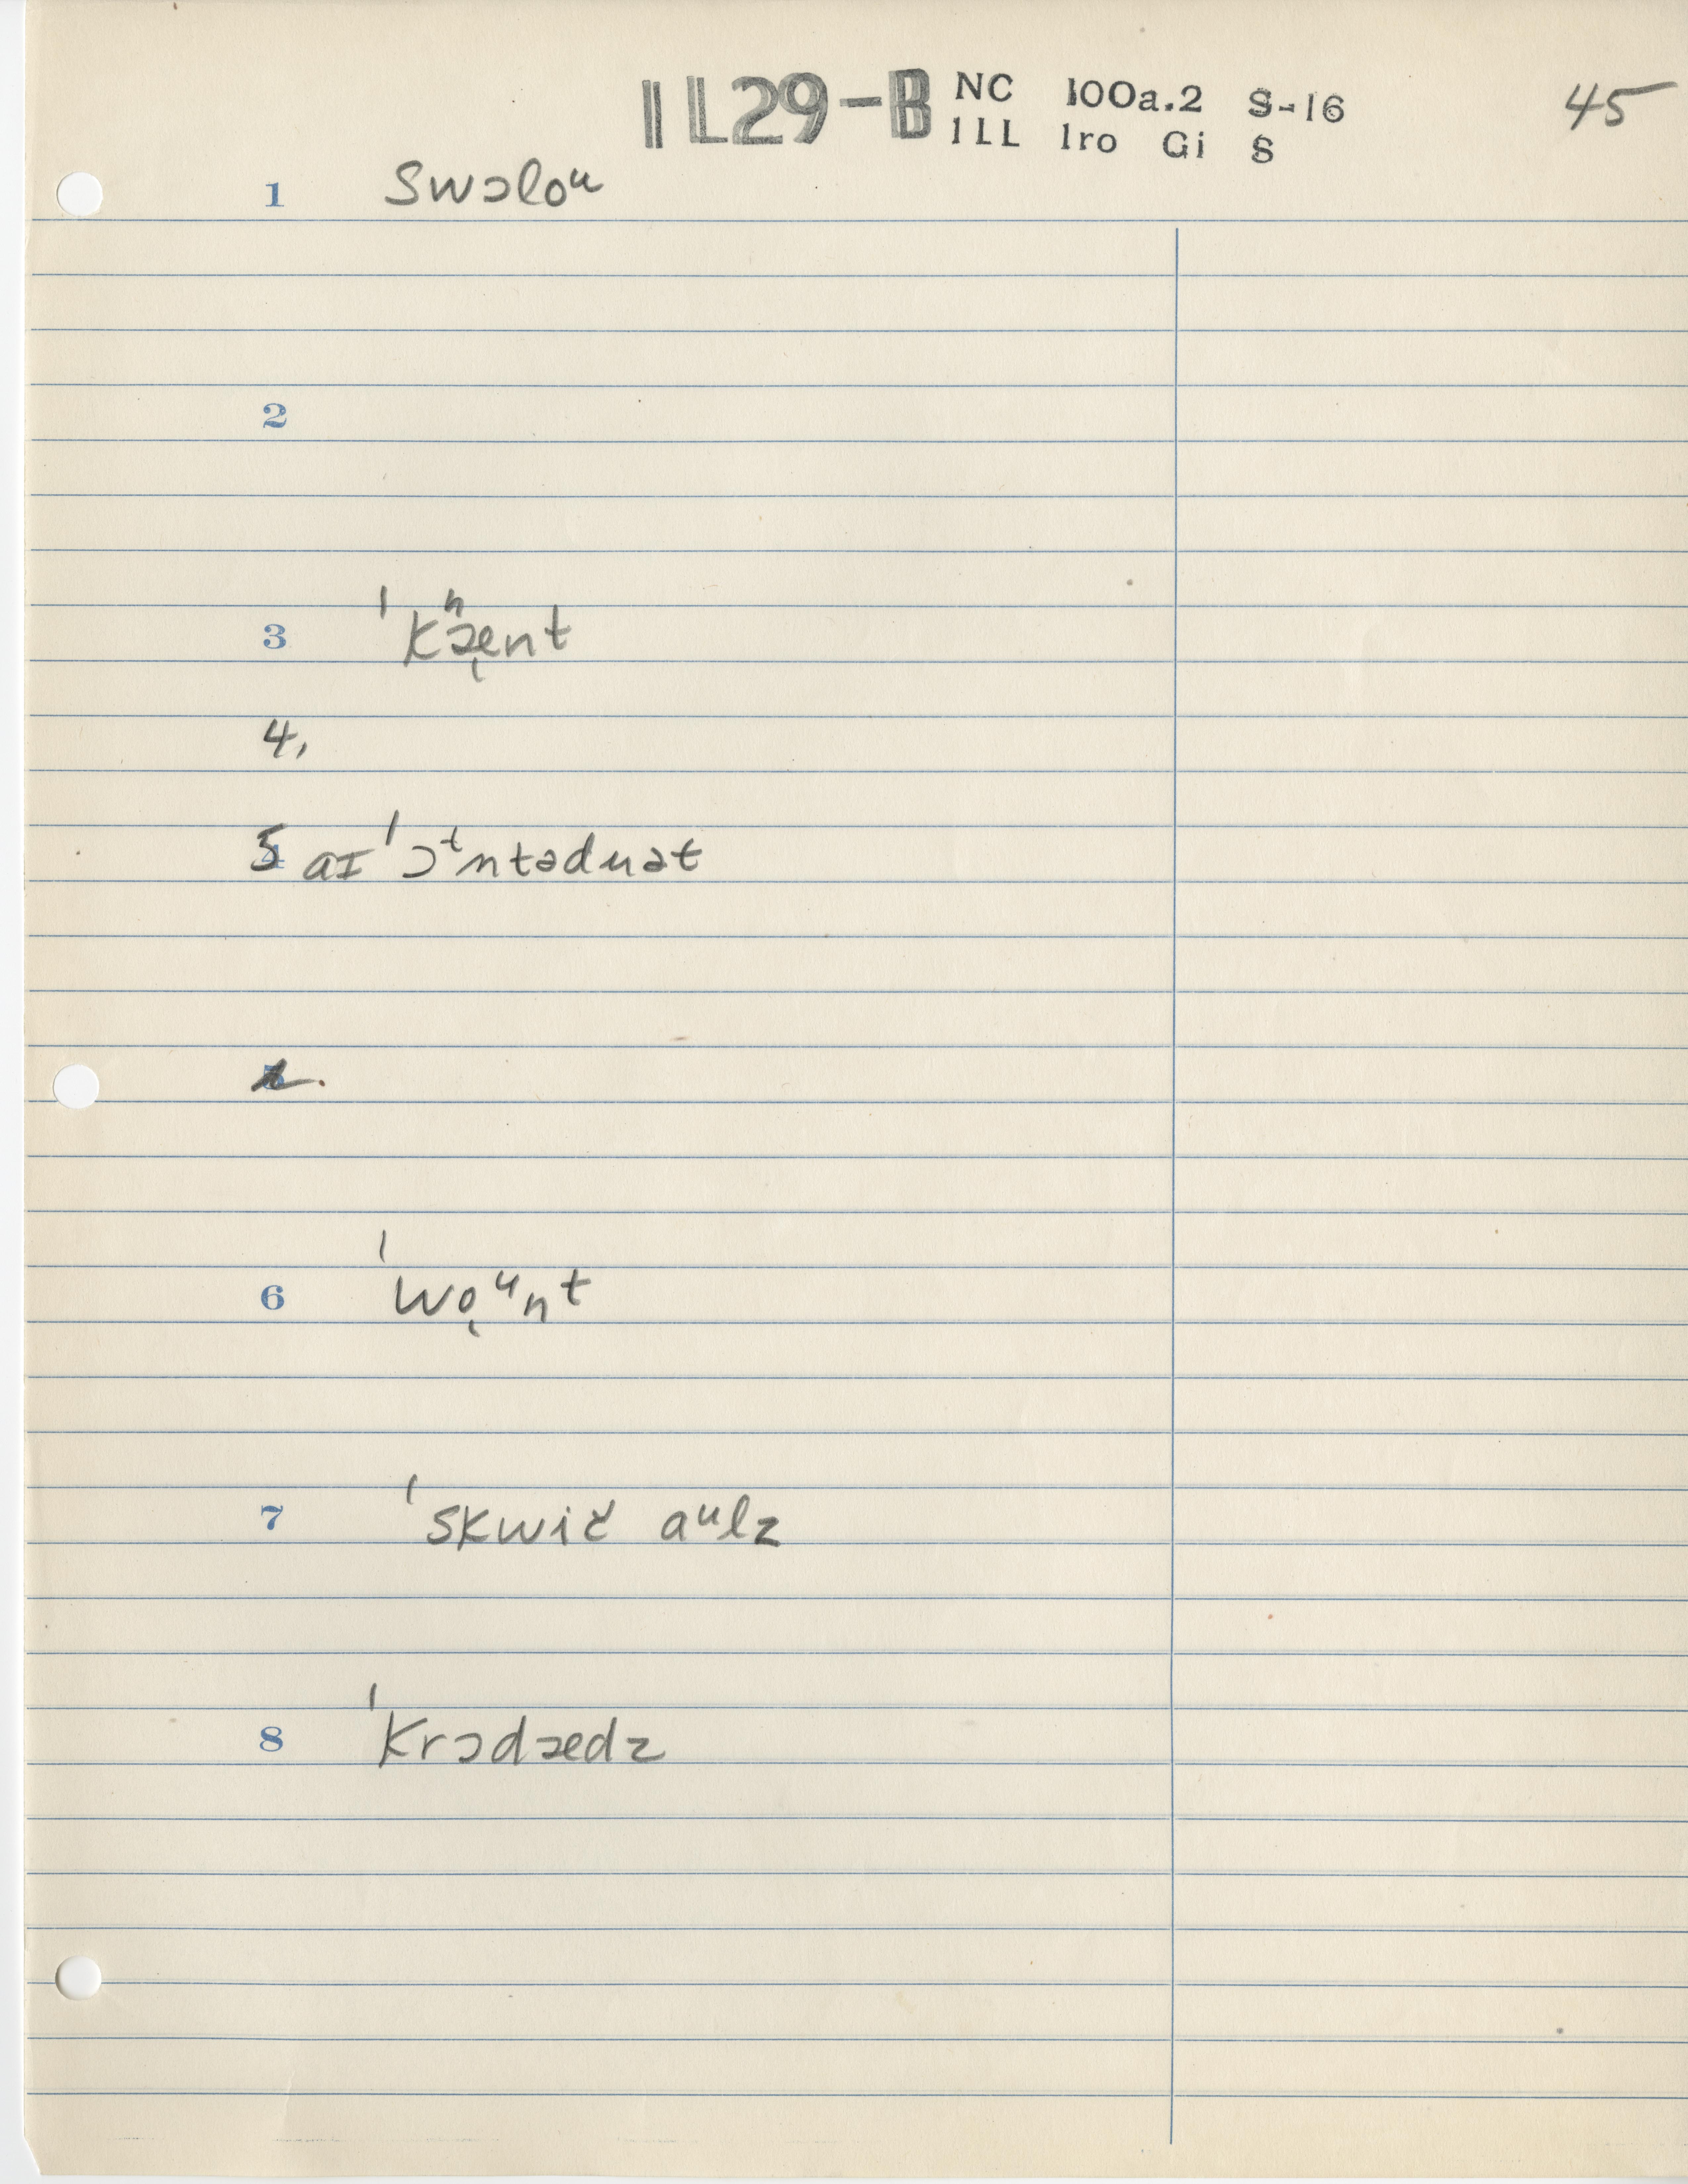 IL29-B NC 100a.2 S-16 45
ILL Iro Gi S
1 swɔloᵘ
2
3 ˈkⁿæ̨nt
4.
5 aɪ ˈɔᵗntəduət
6 ˈwo̜ᵘnt
7 ˈskwič aᵘlz
8 ˈkrɔdædz